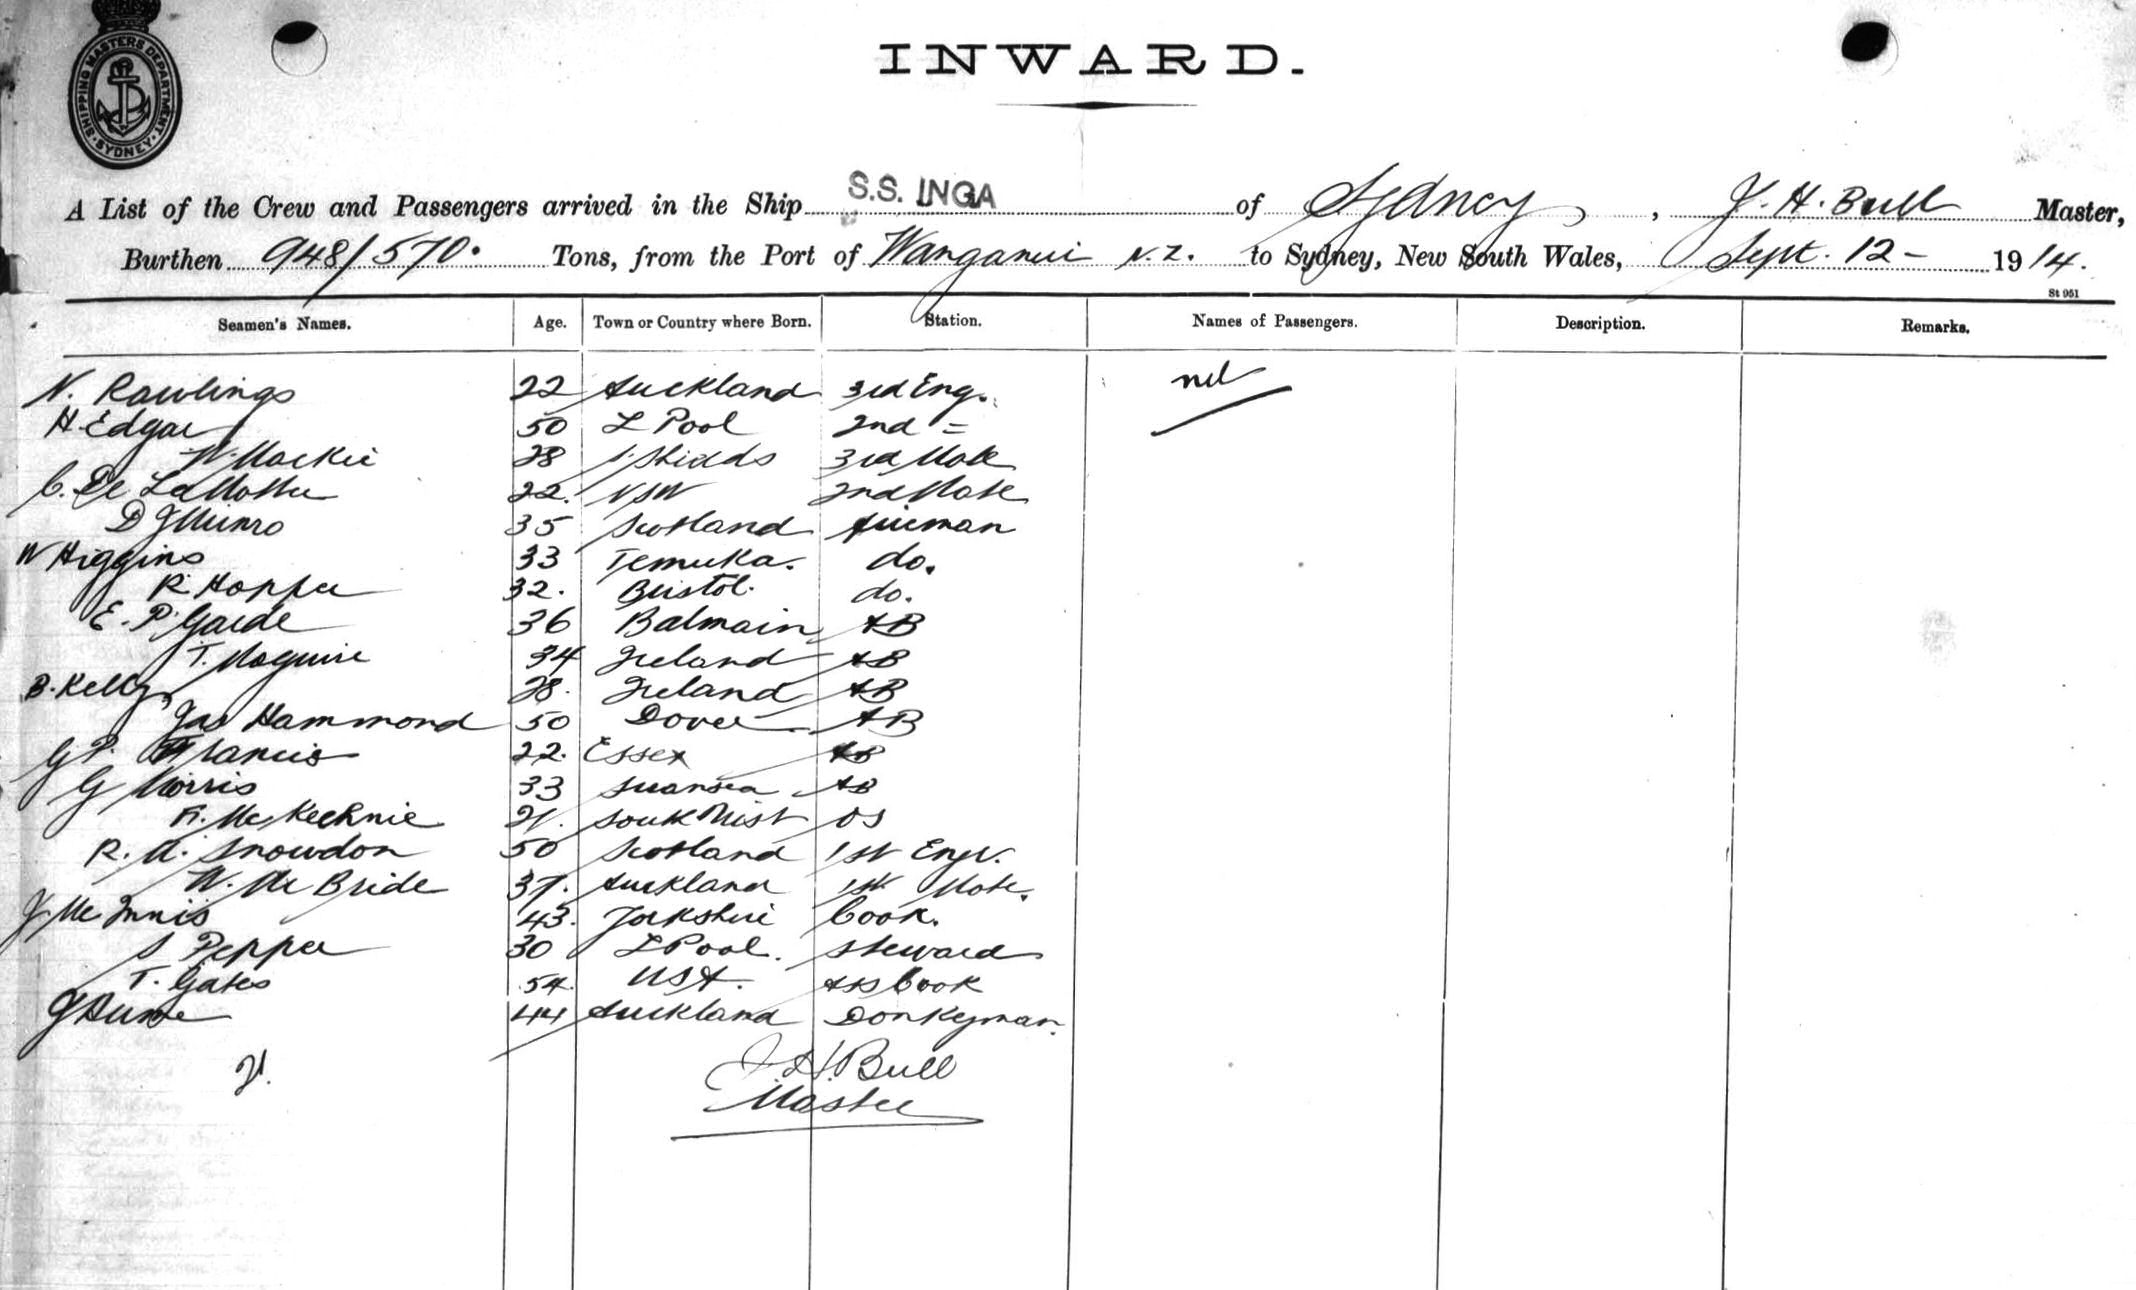 SHIPPING MASTERS DEPARTMENT
SYDNEY
INWARD.
A List of the Crew and Passengers arrived in the Ship S.S. INGA of Sydney, J. H. Bull Master,
Burthen 948/570. Tons, from the Port of Wanganui N.Z. to Sydney, New South Wales, Sept. 12 - 1914.
St 951
Seamen's Names. Age. Town or Country where Born. Station. Names of Passengers. Description. Remarks.
N. Rawlings 22 Auckland 3rd Eng. nil
H. Edgar 50 L Pool 2nd =
W. Mackie 28 S. Shields 3rd Mate
C. De LaMothe 22. NSW 2nd Mate
D J Munro 35 Scotland fireman
W Higgins 33 Temuka. do.
R. Hopper 32. Bristol. do.
E. P. Garde 36 Balmain AB
T. Maguire 34 Ireland AB
B. Kelly 28. Ireland AB
Jas Hammond 50 Dover AB
G P. Francis 22. Essex AB
G Morris 33 Swansea AB
McKechnie 21. South Uist OS
R. A. Snowdon 50 Scotland 1st Engr.
W. McBride 37. Auckland 1st Mate.
J. McInnis 43. Yorkshire Cook.
S Pepper 30 L Pool. Steward
T. Gates 54. USA. Ass Cook
J Hume 44 Auckland Donkyman.
J. H. Bull
Master